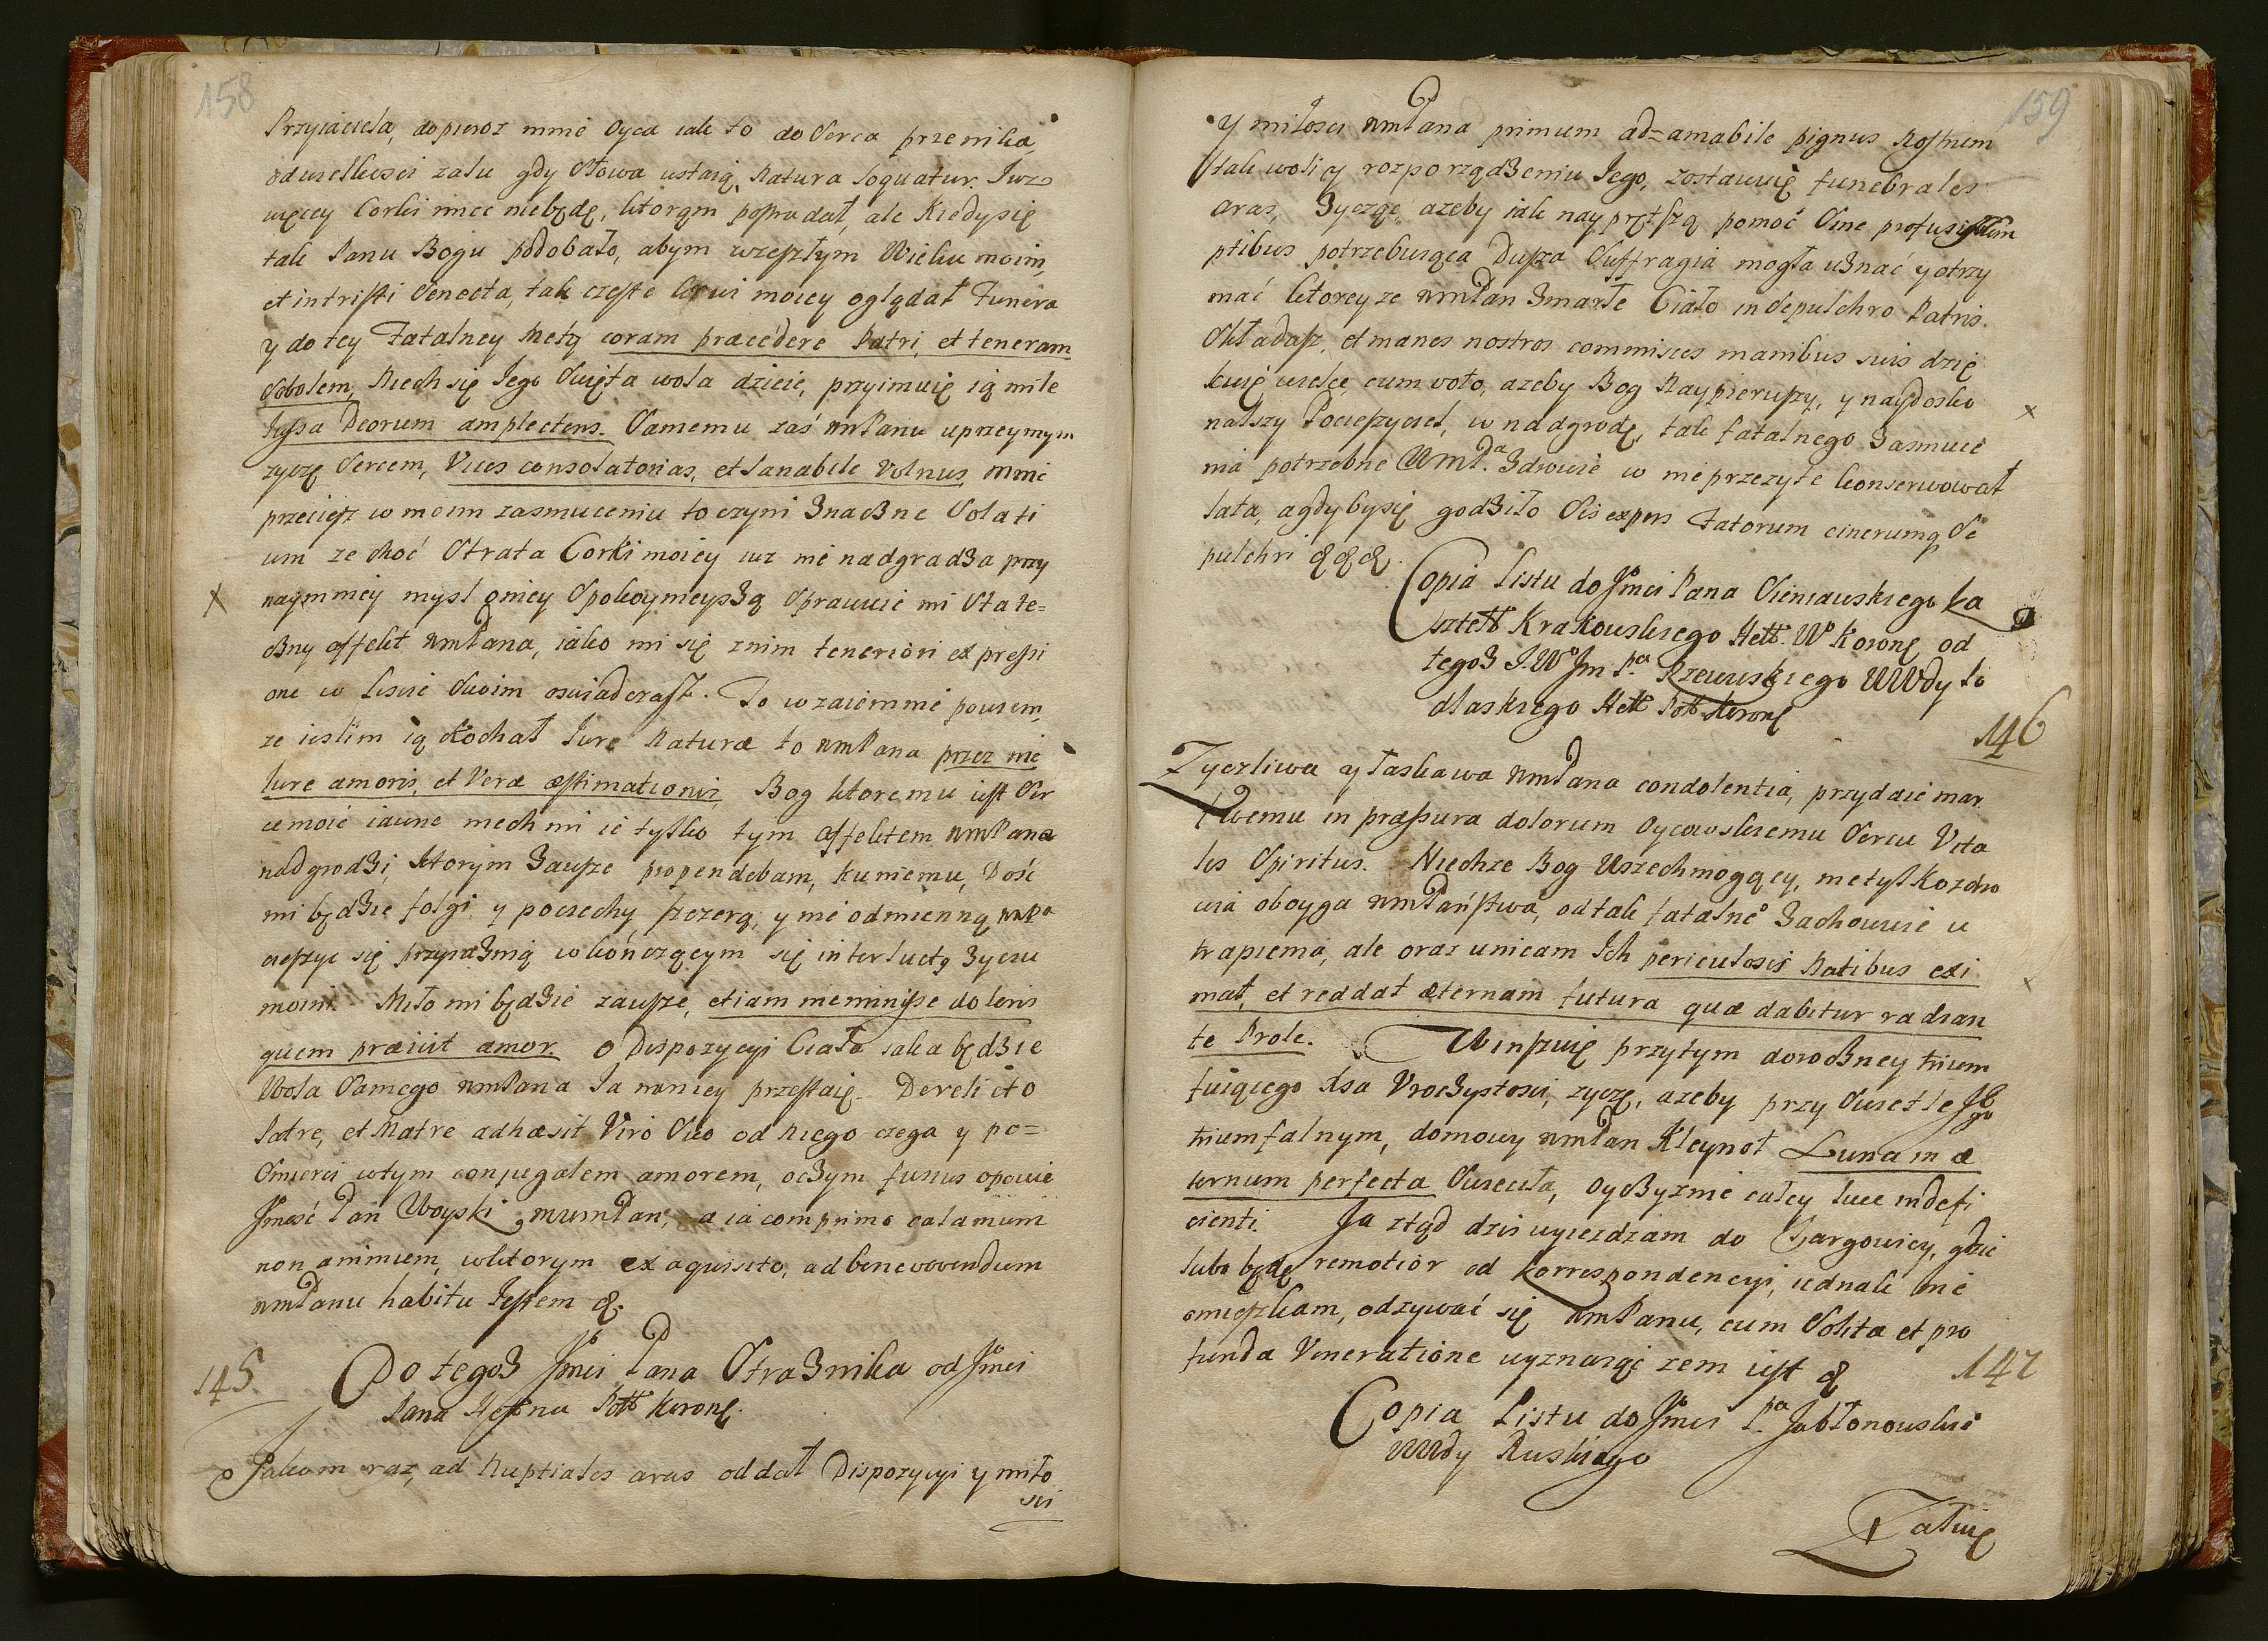 158
Przyiaciela, dopieroz mnie Oyca iak to do Serca przenika,
od wielkosci zalu gdy Słowa ustaią, Natura loquatur. Iuz
więcey Corki miec niebędę, ktorąm posiadał, ale Kiedy się
tak Panu Bogu podobało, abym wzeszłym Wieku moim,
et in tristi Senecta, tak częste krwi moiey oglądał Funera
y do tey Fatalney Mety coram præcedere Patri, et teneram
Sobolem, Niech się Iego Swięta wola dzieie, przyimuię ią mile
Iussa Deorum amplectens. Samemu zaś WmPanu uprzeymym
zyczę Sercem, Vices consolatorias, et Sanabile Volnus, mnie
przeciesz w moim zasmuceniu to czyni Znaczne Solati
um ze choć Strata Corki moiey iuz nie nadgradza przy
naymniey mysl oniey Spokoynieyszą Sprawuie mi State=
czny affekt WmPana, iako mi się znim teneriori expressi
one w Liscie Swoim oswiadczasz. To wzaiemnie powiem,
ze ieslim ią Kochał Iure Naturæ to WmPana przez nię
Iure amoris, et Veræ æstimationis, Bog ktoremu iest Ser
ce moie iawne niech mi ie tylko tym affektem WmPana
nadgrodzi, ktorym Zawsze propendebam, ku niemu, Dość
mi będzie folgi, y pociechy, szczerą, y nie odmienną WmPa
cieszyc się przyiaźnią w kończącym się interluctą zyciu
moim. Miło mi będzie zawsze, etiam meminisse doloris
quem præivit amor. O Dispozycyi Ciała iaka będzie
Wola Samego WmPana Ia naniey przestaię. Derelicto
Patre, et Matre adhæsit Viro Suo od niego czega y po=
Smierci wtym conjugalem amorem, oczym fusius opowie
Jmość Pan Woyski WmmPan, a ia comprimo calamum
non animum, wktorym ex aquisito, ad benevovendum
WmPanu habitu Iestem &.
145. Do tegoz Jmci Pana Straznika od Jmci
Pana Hetmana Poll Koronę.
Jakom raz, ad Nuptiales aras oddał Dispozycyi y miło
sci
159
y miłosci WmPana primum ad=amabile pignus Nostrum
tak woli y rozporządzeniu Iego, zostawuię funebrales
aras, Zyczę, azeby iak nayprętszą pomoć Sine profusis sum
ptibus potrzebuiąca Dusza Suffragia mogła uznać y otrzy
mać ktorey ze WmPan Zmarłe Ciało in Sepulchro Patris.
Składasz, et manes nostros commisces manibus suis dzię
kuię wielce cum voto, azeby Bog Naypierwszy, y naydosko
nalszy Pocieszyciel, w nadgrodę, tak fatalnego Zasmuce
nia potrzebne WmPa Zdrowie w nieprzezyte konserwował
lata, agdybysię godziło Sis expers Fatorum cinerumq Se
pulchri &&&.
Copia Listu do Jmci Pana Sieniawskiego Ka
sztell Krakowskiego Hett. Wo Koronę od
tegoz J.Wo Jm Pa Rzewuskiego WWdy Po
dlaskiego Hett Poll Koronę
146
Zyczliwa y łaskawa WmPana condolentia, przydaie mar
twemu in præssura dolorum Oycowskiemu Sercu Vita
les Spiritus. Niechze Bog Wszechmogący, nietylko zdro
wia oboyga WmPaństwa, od tak fatalne Zachowuie u
trapienia, ale oraz unicam Ich periculosis Natibus exi
mat, et reddat æternam futura quæ dabitur radian
te Prole. Winszuię przytym doroczney trium
fuiącego Asa Uroczystosci, zyczę, azeby przy Swietle Jgo
triumfalnym, domowy WmPan Kleynot Luna in æ
ternum perfecta Swieciła, Oyczyznie całey luce indefi
cienti. Ja ztąd dzis wyiezdzam do Targowicy, gdzie
lubo będę remotior od Korrespondencyi, iednak nie
omieszkam, odzywać się WmPanu, cum Solita et pro
funda Veneratione wyznaiąc zem iest &
147
Copia Listu do Jmci Pa Jabłonowskie
WWdy Ruskiego
Załuię